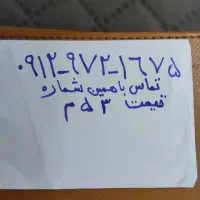 ۰۹۱۲-۹۷۲-۱۶۷۵
تماس با همین شماره
قیمت ۵۳ م